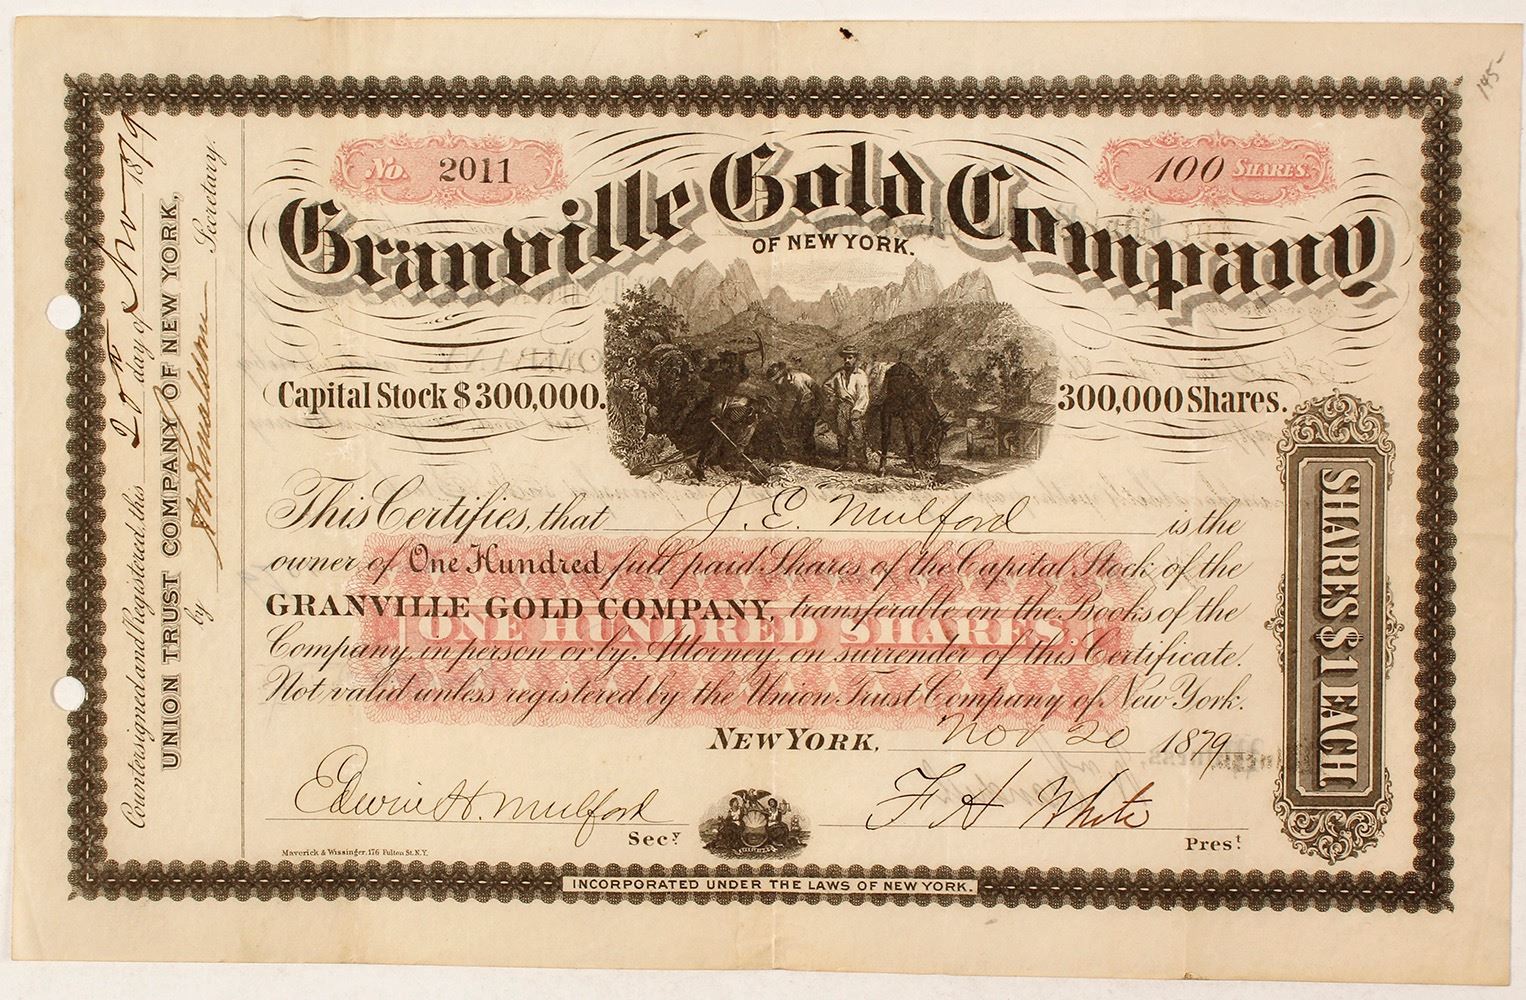 145-
No. 2011
100 SHARES.
Granville Gold Company
OF NEW YORK.
Capital Stock $300,000.
300,000 Shares.
This Certifies, that J. E. Mulford is the
owner of One Hundred full paid Shares of the Capital Stock of the
GRANVILLE GOLD COMPANY, transferable on the Books of the
ONE HUNDRED SHARES.
Company, in person or by Attorney, on surrender of this Certificate.
Not valid unless registered by the Union Trust Company of New York.
NEW YORK, Nov 20 1879
Edwin H. Mulford
Secy
F H White
Prest
Maverick & Wissinger, 176 Fulton St. N.Y.
INCORPORATED UNDER THE LAWS OF NEW YORK.
SHARES $1 EACH
Countersigned and Registered, this 20th day of Nov 1879
UNION TRUST COMPANY OF NEW YORK,
by Secretary.